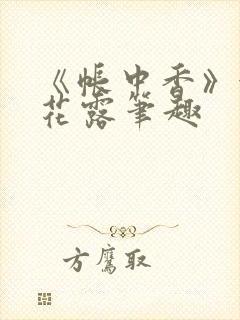 《帐中香》
花露笔趣
方鹰取